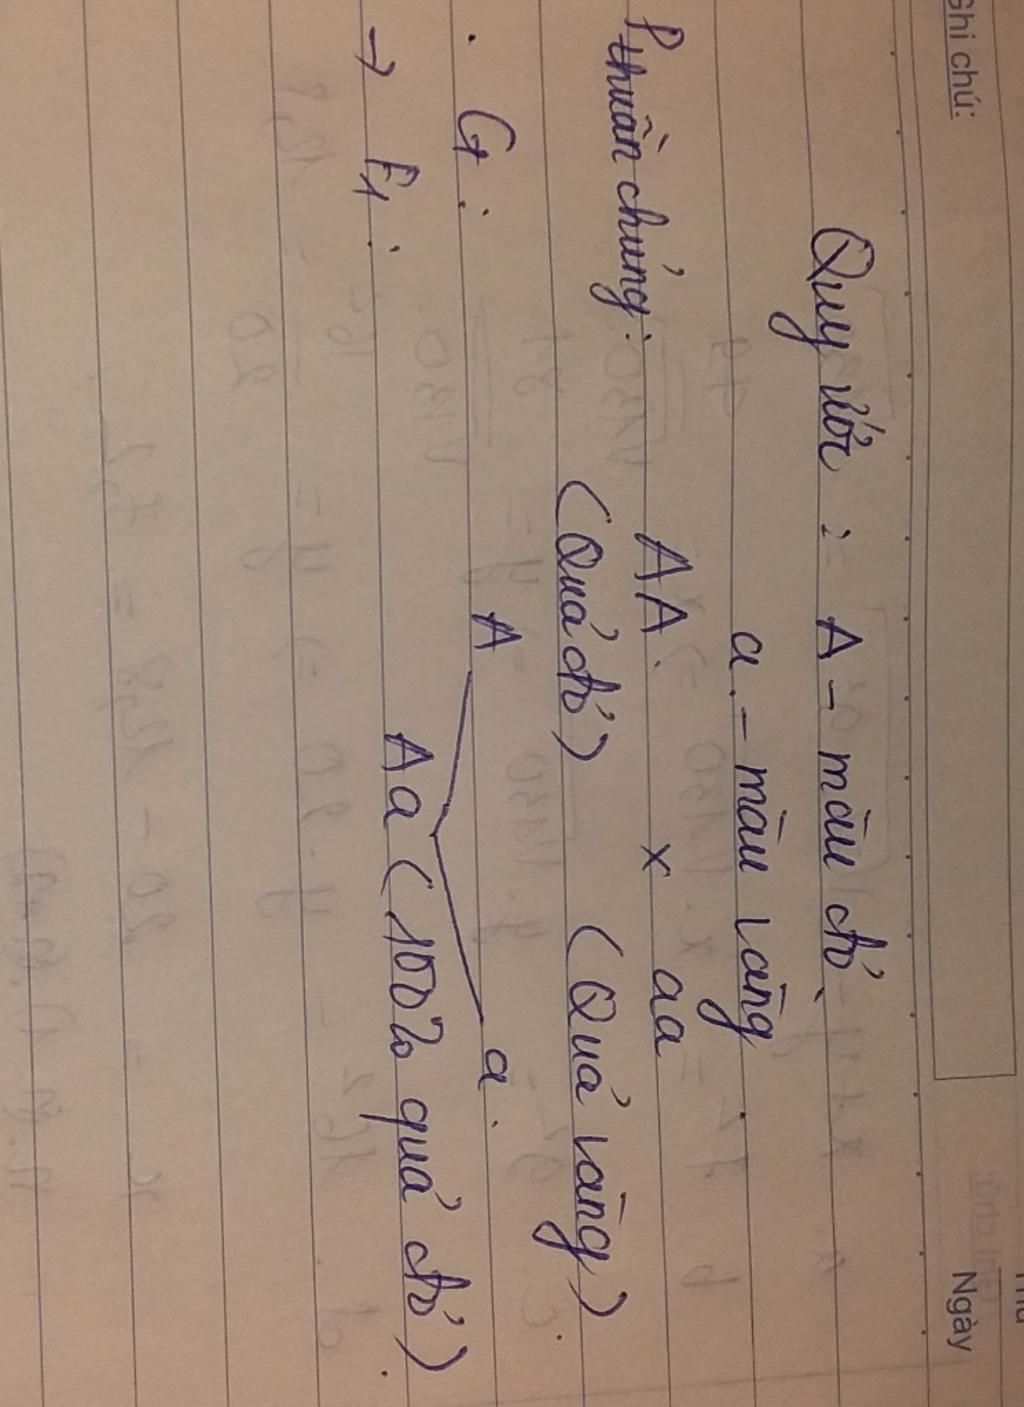 Ghi chú:
Ngày
Quy ước : A - màu đỏ.
a - màu vàng.
Pthuần chủng : AA x aa
(Quả đỏ) (Quả vàng).
G : A a.
→ F1 : Aa (100% quả đỏ).